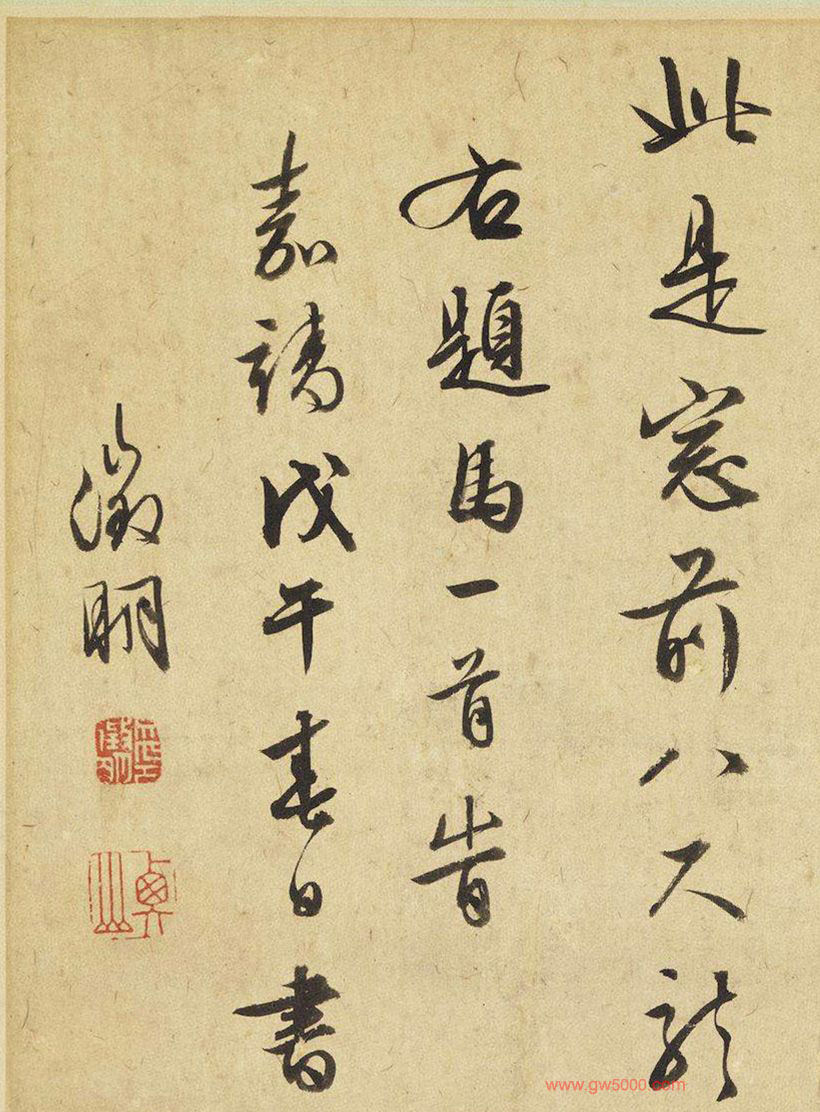 此是窓前八尺龍
右題馬一首旹
嘉靖戊午春日書
徵明
www.gw5000.com